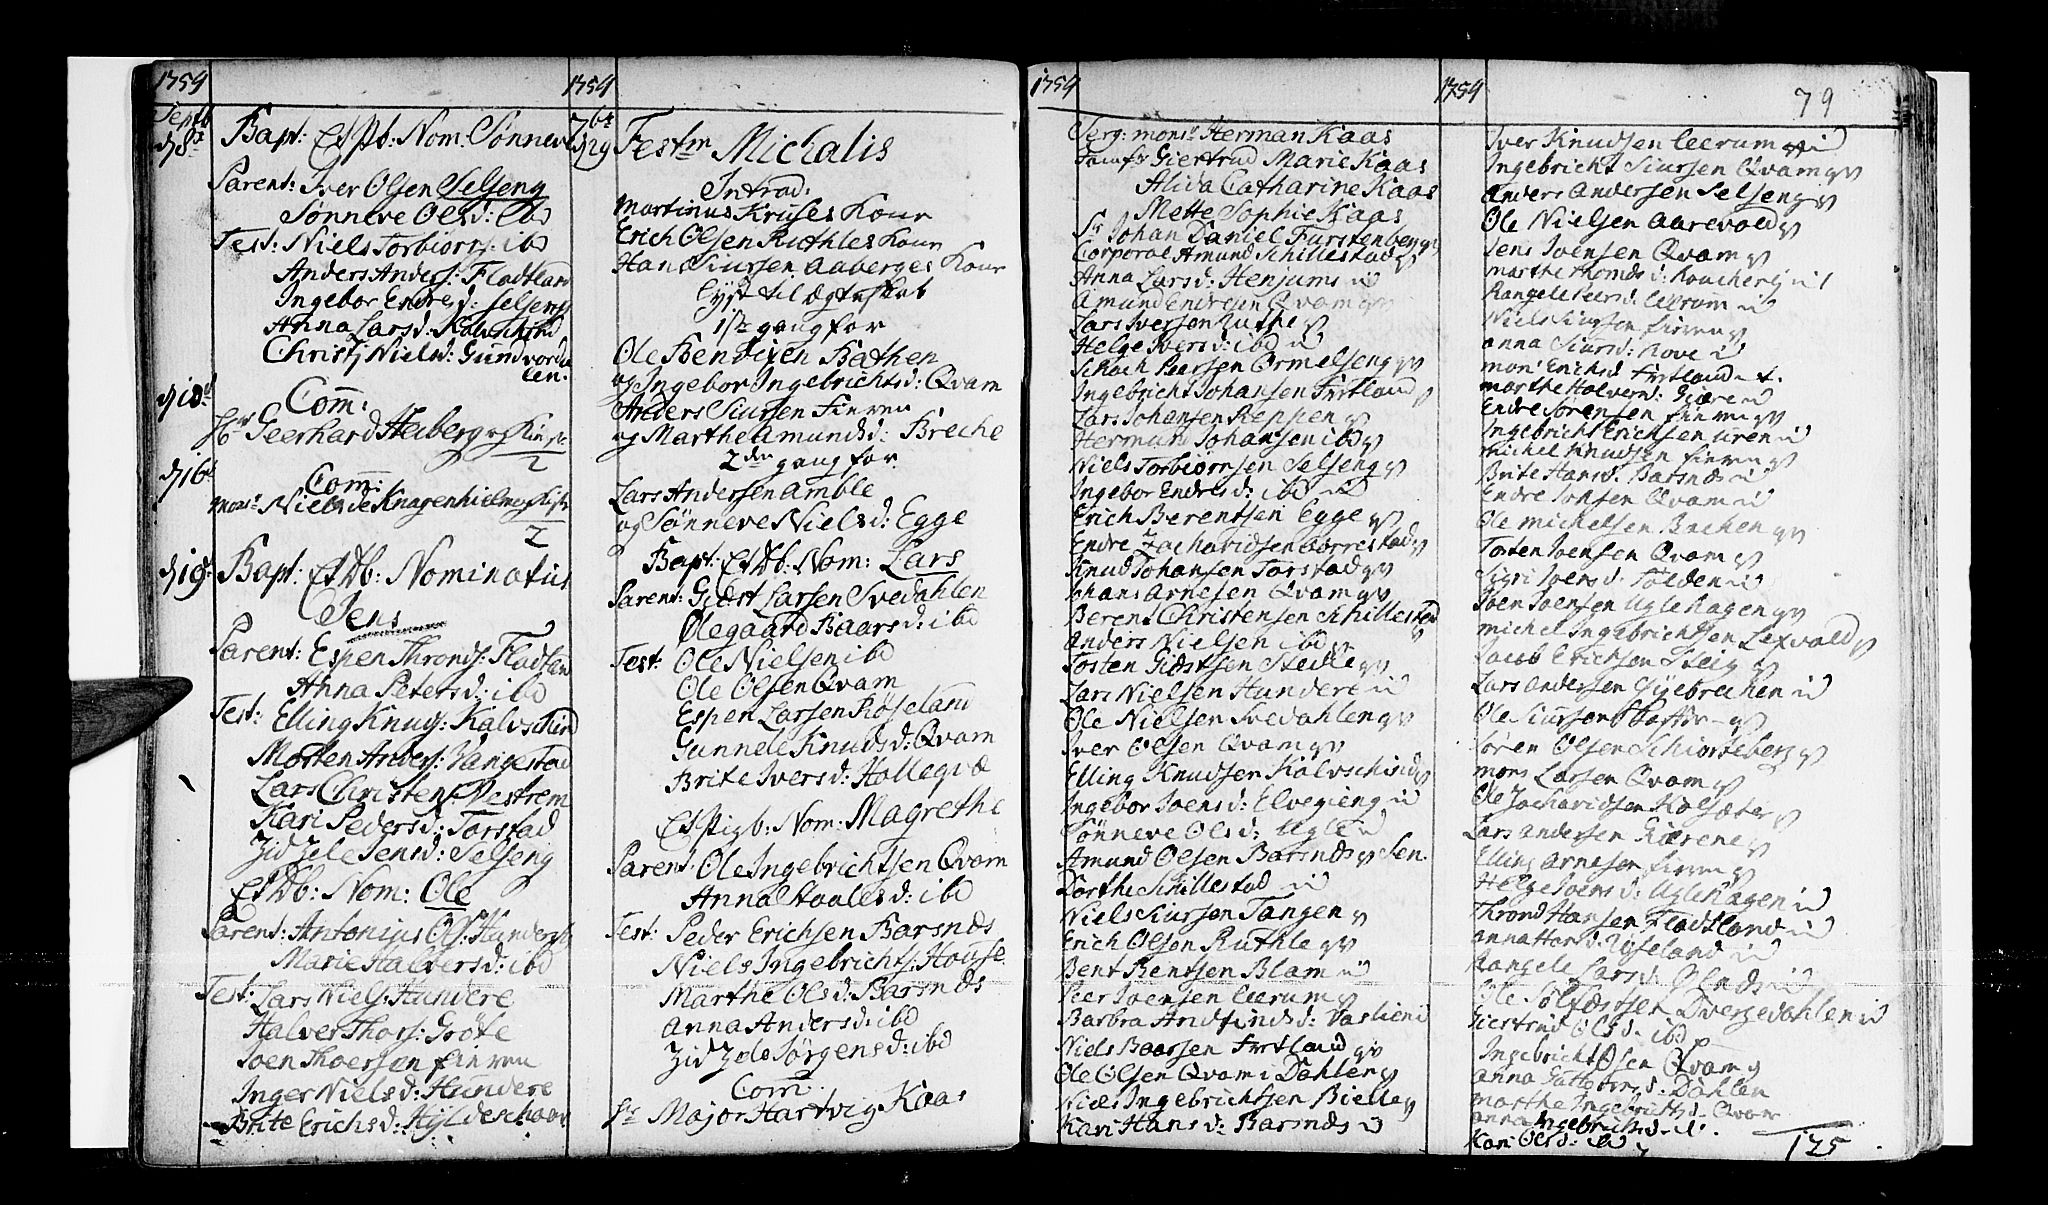 1759
Septb
d 8de
Bapt: Et Pb: Nom: Sønneve
Parent: Iver Olsen Selseng
Sønneve Olsd: ibd
Test: Niels Torbiørns: ibd
Anders Anders: Fladtland
Ingebor Endresd: Selseng
Anna Larsd: Kalvschind
Christj Nielsd: Gundvorda
len.
d 10d
Com:
Hr Geerhard Heiberg og
2
d 16d
Com:
Monsr Niels de Knagenhielm og
2
d 19d
Bapt: Et Db: Nominatus
Jens
Parent: Espen Thronds: Fladtland
Anna Petersd: ibd
Test: Elling Knuds: Kalvschind
Morten Anders: Vangestad
Lars Christens: Nestrem
Kari Pedersd: Torstad
Zidzele Jensd: Selseng
Et Db: Nom: Ole
Parent: Antonius Ols: Hundere
Marie Halversd: ibd
Test: Lars Niels: Hundere
Halver Thors: Grøte
Joen Thoersen Finven
Inger Nielsd: Hundere
Brite Erichsd: Hyldeschaar
1759
7br
d 29
Festm Michalis
Introd:
Martinus Kruses Kone
Erich Olsen Ruthles Kone
Hans Siursen Aaberges Kone
Lyst til Ægteskab
1ste gang for
Ole Bendixen Bathen
og Ingebor Ingebrichtsd: Qvam
Anders Siursen Finven
og Marthe Amundsd: Breche
2den gang for
Lars Andersen Amble
og Sønneve Nielsd: Egge
Bapt: Et Db: Nom: Lars
Parent: Giæst Larsen Svedahlen
Olegaard Baarsd: ibd
Test: Ole Nielsen ibd
Ole Olsen Qvam
Espen Larsen Røseland
Gunnele Knudsd: Qvam
Brite Iversd: Holleqvæ
Et Pigb: Nom: Magrethe
Parent: Ole Ingebrichtsen Qvam
Anna Staalesd: ibd
Test: Peder Erichsen Barsnæs
Niels Ingebrichts: House
Marthe Olsd: Barsnæs
Anna Andersd: ibd
Zidzele Jørgensd: ibd
Com:
Hr Major Hartvig Kaas
1759
Serg: monsr Herman Kaas
Jomfr Giertrud Marie Kaas
Alida Catharine Kaas
Mette Sophie Kaas
Sr Johan Daniel Furstenberg
Corporal Amund Schillestad
Anna Larsd: Henjum
Amund Endresen Qvam
Lars Iversen Ruthle
Helge Iversd: ibd
Schach Peersen Ormelseng
Ingebricht Johansen Frtland
Lars Johansen Reppen
Herman Johansen ibd
Niels Torbiørnsen Selseng
Ingebor Endresd: ibd
Erich Berentsen Egge
Endre Zacharidsen
Knud Johansen Torstad
Johans Arnesen Qvam
Berent Christensen Schillestad
Anders Nielsen ibd
Tosten Giæstsen Stedie
Lars Nielsen Hundere
Ole Nielsen Svedahlen
Iver Olsen Qvam
Elling Knudsen Kalvschind
Ingebor Joensd: Elvegieng
Sønneve Olsd: Ugle
Amund Olsen Barsnæs Sen.
Dorthe Schillestad
Niels Siursen Tangen
Erich Olsen Ruthle
Bent Bentsen Blam
Peer Joensen Leerum
Barbra Andfindsd: Vaslien
Niels Baarsen Frtland
Ole Olsen Qvam i Dahlen
Niels Ingebrichtsen Bielle
Kari Hansd: Barsnæs
1759
79
Iver Knudsen Leerum
Ingebricht Siursen Qvam
Anders Andersen Selseng
Ole Nielsen Aarevold
Jens Joensen Qvam
Marthe Thomasd:
Rangele Peersd: Leerum
Niels Finven
Anna Siursd: Hove
Mons Erichs Frtland
Marthe Halversd: Giære
Endre Sørensen Finven
Ingebricht Erichsen Uren
Michel Knudsen Finven
Brite Hansd: Barsnæs
Endre Qvam
Ole Michelsen Bachen
Tosten Joensen Qvam
Sigri Joensd:
Joen Joensen Uglehagen
Michel Ingebrichtsen Lexvold
Jacob Erichsen Steig
Lars Andersen Gyebrechen
Ole Siursen
Søren Olsen Schiorteberg
Mons Larsen Qvam
Ole Zacharidsen Kolsæter
Lars Andersen
Elling Arnesen Finven
Helge Joensd: Uglehagen
Thrond Hansen Fladtland
Anna
Rangele Larsd: Olnæs
Ole Dvergedahlen
Giertrud Olsd: ibd
Ingebricht Olsen Qvam
Anna Dahlen
Marthe Ingebrichtsd: Qvam
Anna Ingebrichtsd:
Kari Olsd:
125